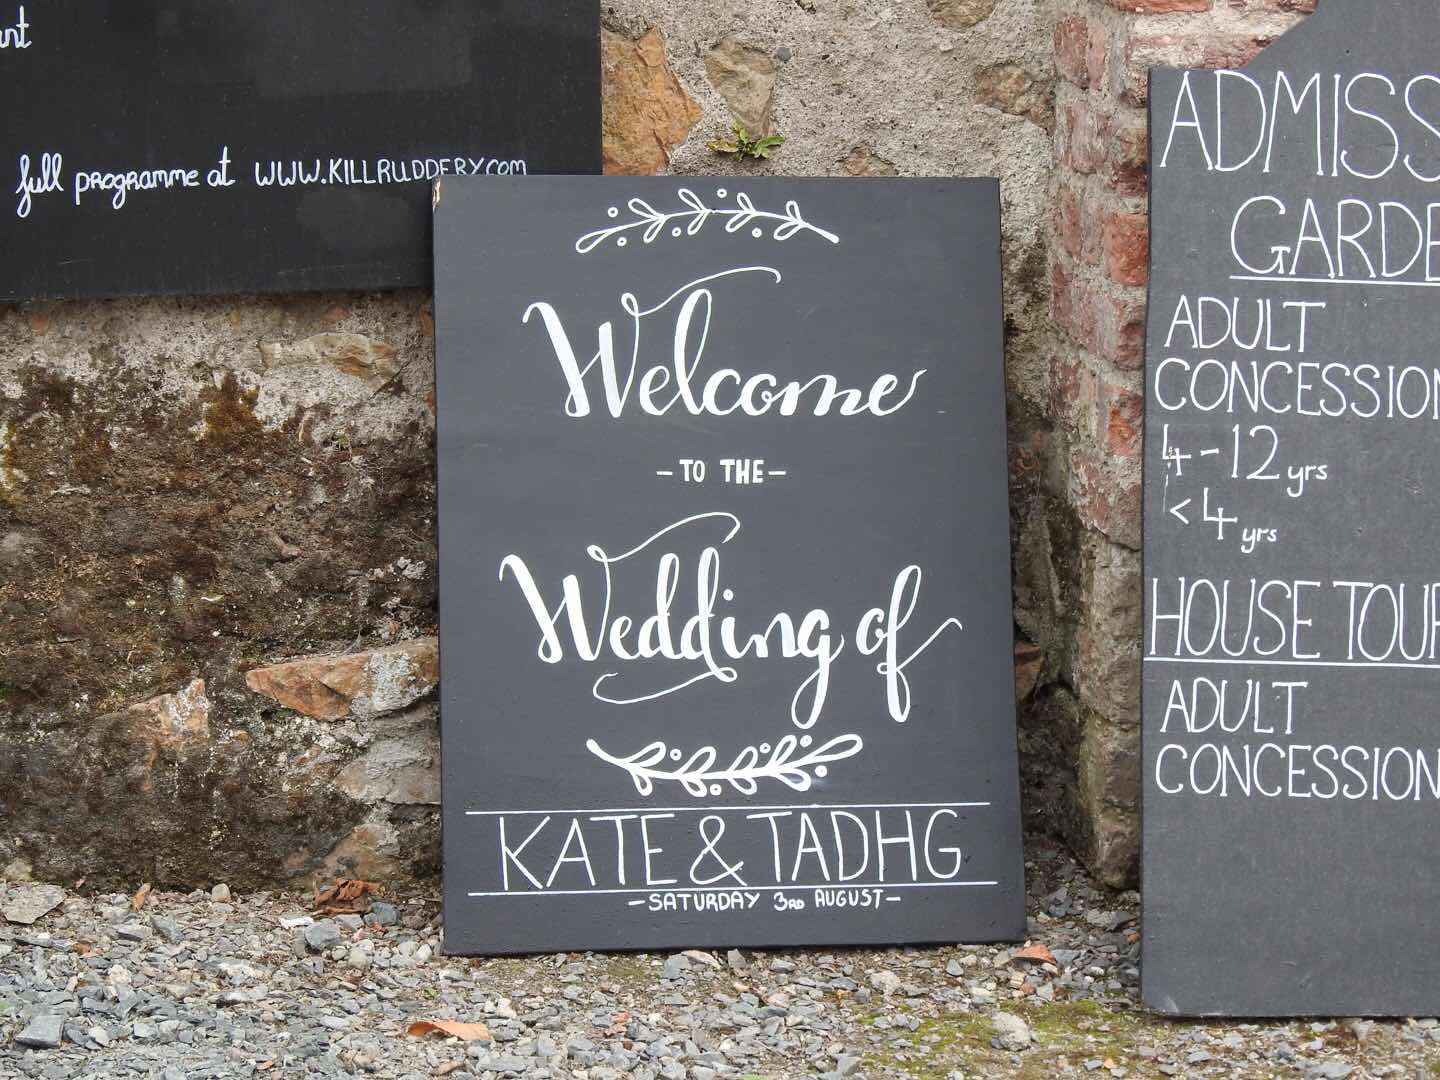 full programme at WWW.KILLRUDDERY.com
Welcome
-TO THE-
Wedding of
KATE & TADHG
-SATURDAY 3RD AUGUST-
GARDE
ADULT
CONCESSION
4-12 yrs
<4 yrs
HOUSE TOUR
ADULT
CONCESSION